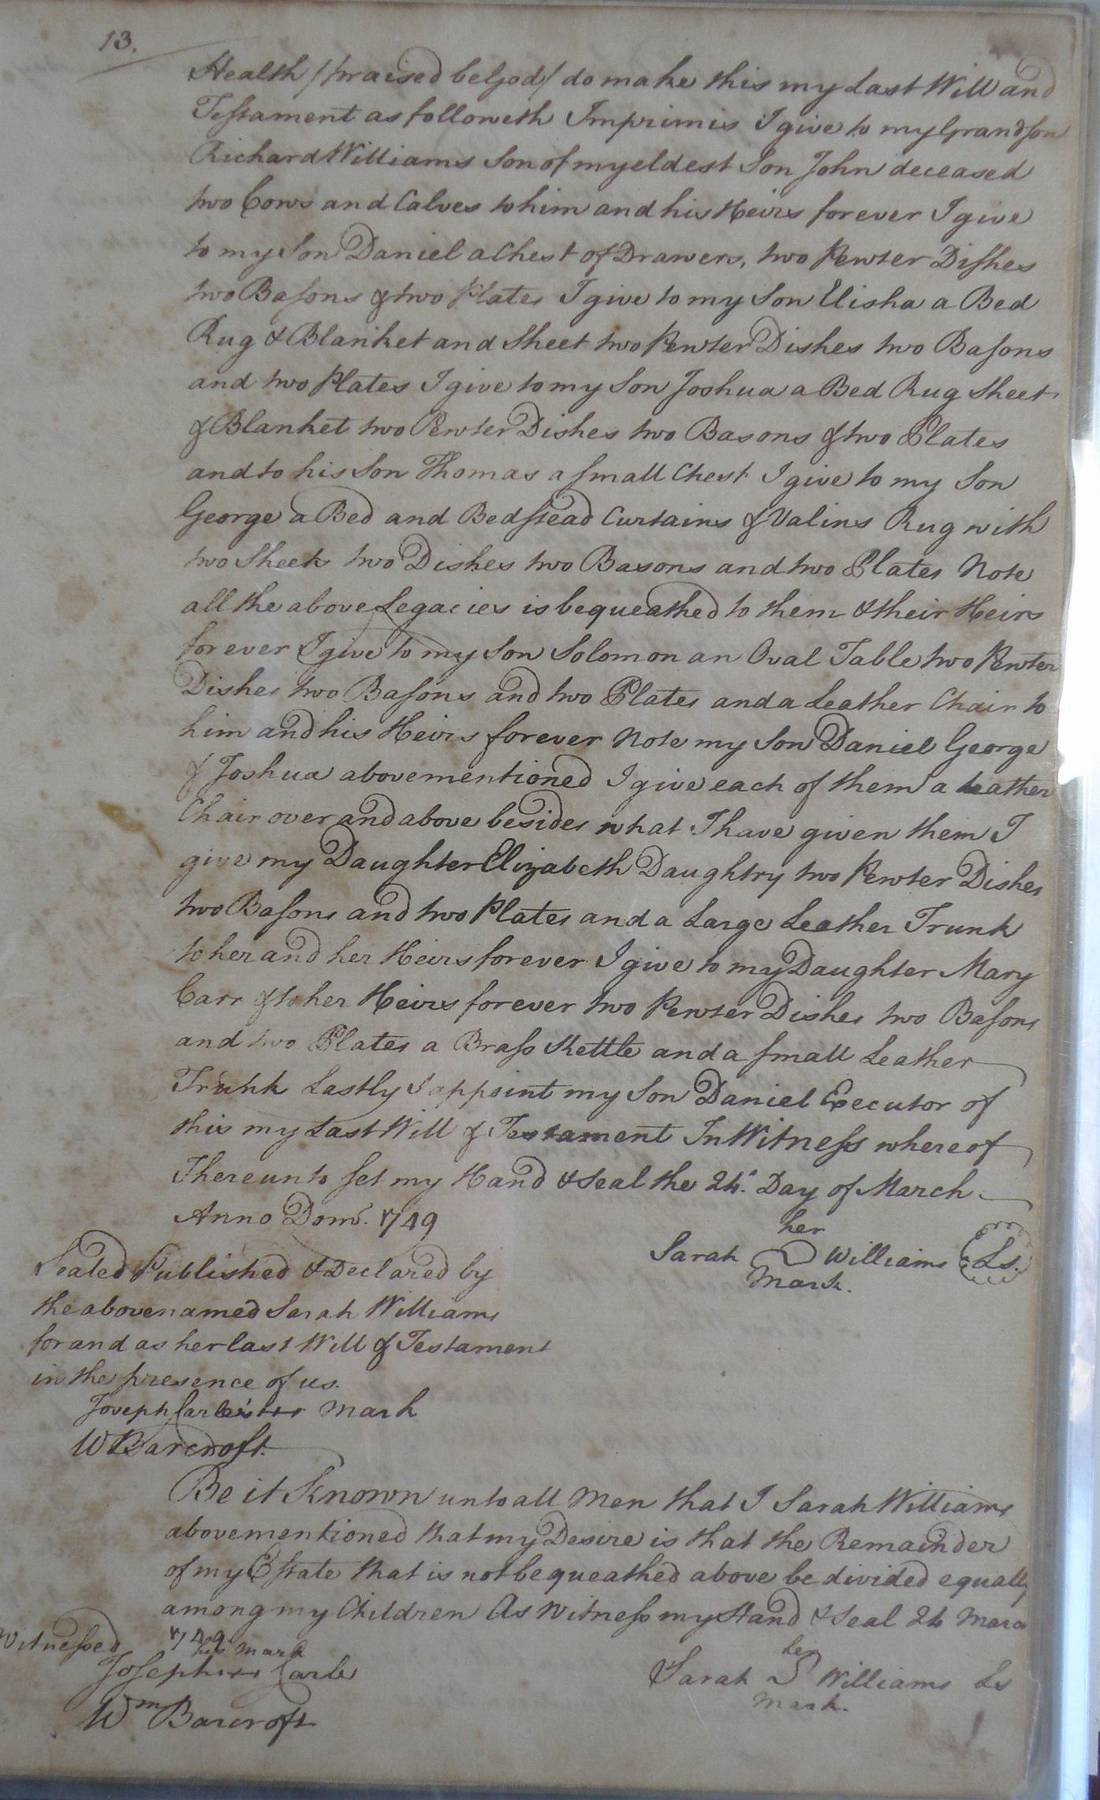 13.
Health /praised be God/ do make this my Last Will and
Testament as followeth Imprimis I give to my Grandson
Richard Williams Son of my eldest Son John deceased
two Cows and Calves to him and his Heirs forever I give
to my Son Daniel a Chest of Drawers, two Pewter Dishes
two Basons & two Plates I give to my Son Elisha a Bed
Rug & Blanket and Sheet two Pewter Dishes two Basons
and two Plates I give to my Son Joshua a Bed Rug Sheet
& Blanket two Pewter Dishes two Basons & two Plates
and to his Son Thomas a small Chest I give to my Son
George a Bed and Bedstead Curtains & Valins Rug with
two Sheets two Dishes two Basons and two Plates Note
all the above Legacies is bequeathed to them & their Heirs
forever I give to my Son Solomon an Oval Table two Pewter
Dishes two Basons and two Plates and a Leather Chair to
him and his Heirs forever Note my Son Daniel George
& Joshua abovementioned I give each of them a Leather
Chair over and above besides what I have given them I
give my Daughter Elizabeth Daughtry two Pewter Dishes
two Basons and two Plates and a Large Leather Trunk
to her and her Heirs forever I give to my Daughter Mary
Carr & to her Heirs forever two Pewter Dishes two Basons
and two Plates a Brass Kettle and a small Leather
Trunk Lastly I appoint my Son Daniel Executor of
this my Last Will & Testament In Witness whereof
I hereunto set my Hand & Seal the 24. Day of March
Anno Dom. 1749
her
Sarah S Williams Ls.
Mark.
Sealed Published & Declared by
the abovenamed Sarah Williams
for and as her last Will & Testament
in the presence of us.
Joseph Carle his Mark
W Barcroft.
Be it Known unto all Men that I Sarah Williams
abovementioned that my Desire is that the Remainder
of my Estate that is not bequeathed above be divided equally
among my Children As Witness my Hand & Seal 24 Marc
1749
Witnessed
his Mark
Joseph Carle
Wm Barcroft
her
Sarah S Williams Ls
Mark.